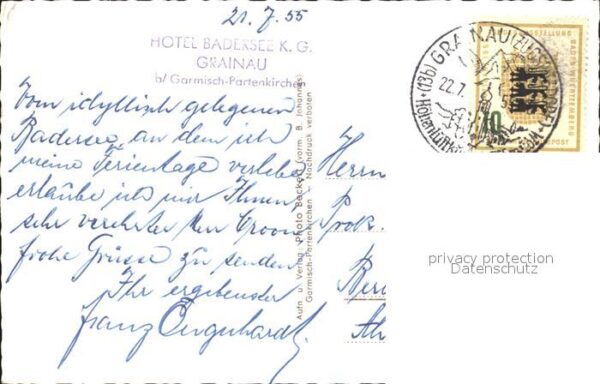 21.7.55
HOTEL BADERSEE K.G.
GRAINAU
b/ Garmisch-Partenkirchen
Vom idyllisch gelegenen
Badersee, an dem ich
meine Ferientage verlebe
erlaube ich mir Ihnen,
sehr verehrter Herr
frohe Grüsse zu senden
Ihr ergebenster
Franz Engenhardt.
Aufn. u. Verlag: Photo Beckert (vorm. B. Johannes)
Garmisch-Partenkirchen - Nachdruck verboten
Herrn
Prok.
(13b) GRAINAU
22.7.
10
BADEN-WÜRTTEMBERG
privacy protection
Datenschutz